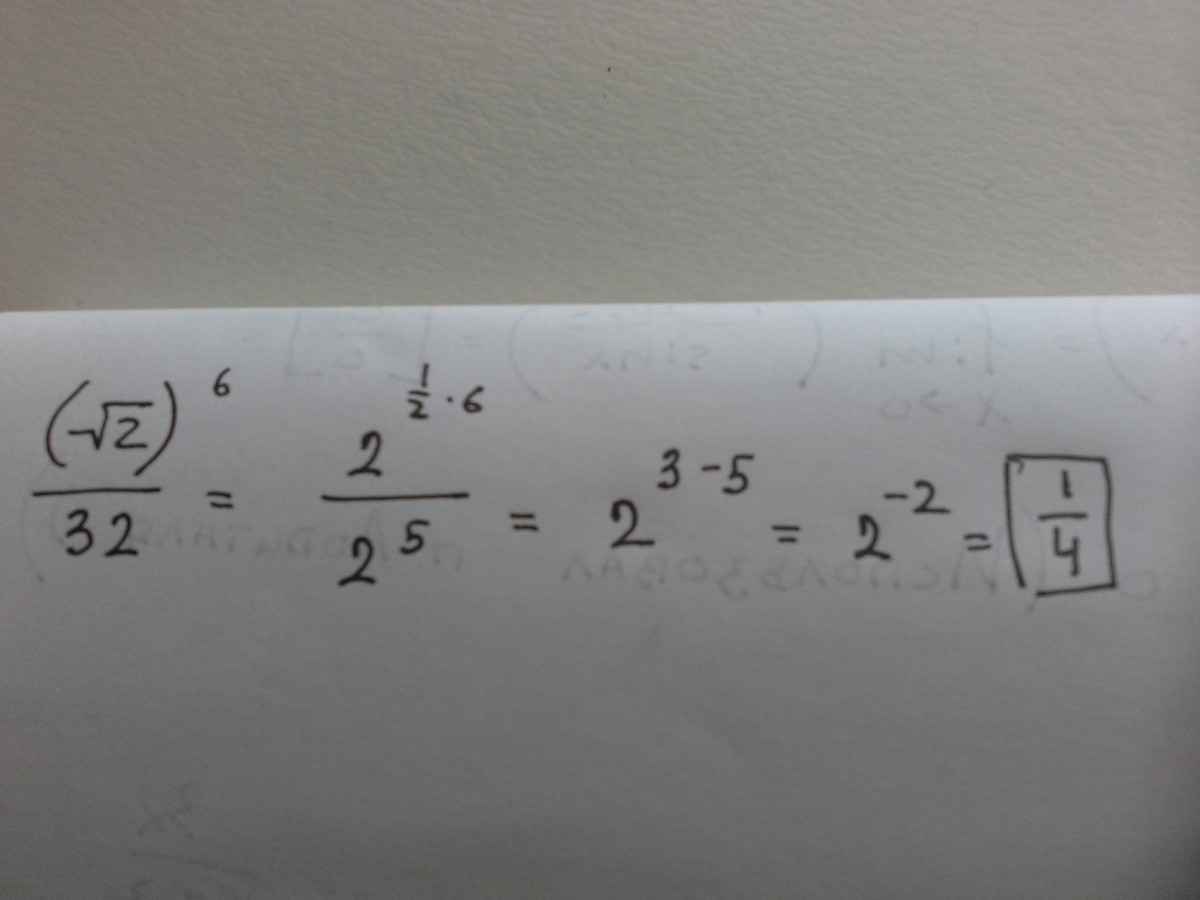 (√2)^6 / 32 = 2^(1/2 · 6) / 2^5 = 2^(3-5) = 2^(-2) = 1/4